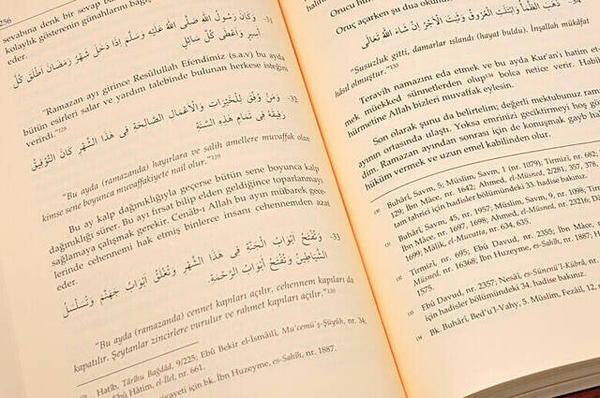 256
sevabına denk bir sevap
kolaylık gösterenin günahlarını bağış
eder.
31- وَكَانَ رَسُولُ اللهِ صَلَّى اللهُ عَلَيْهِ وَسَلَّمَ إِذَا دَخَلَ شَهْرُ رَمَضَانَ أَطْلَقَ كُلَّ
أَسِيرٍ وَأَعْطَى كُلَّ سَائِلٍ
"Ramazan ayı girince Resûlullah Efendimiz (s.a.v) bu ayda
bütün esirleri salar ve yardım talebinde bulunan herkese isteğini
verirdi."
32- وَمَنْ وُفِّقَ لِلْخَيْرَاتِ وَالْأَعْمَالِ الصَّالِحَةِ فِى هٰذَا الشَّهْرِ كَانَ التَّوْفِيقُ
رَفِيقَهُ فِى تَمَامِ هٰذِهِ السَّنَةِ
"Bu ayda (ramazanda) hayırlara ve salih amellere muvaffak olan
kimse sene boyunca muvaffakiyete nail olur."
Bu ay kalp dağınıklığıyla geçerse bütün sene boyunca kalp
dağınıklığı sürer. Bu ayı fırsat bilip elden geldiğince toparlanmayı
sağlamaya çalışmak gerekir. Cenâb-ı Allah bu ayın mübarek gece-
lerinde cehennemi hak etmiş binlerce insanı cehennemden azat
eder.
33- وَتُفْتَحُ أَبْوَابُ الْجَنَّةِ فِى هٰذَا الشَّهْرِ وَتُغْلَقُ أَبْوَابُ جَهَنَّمَ وَتُسَلْسَلُ
الشَّيَاطِينُ وَتُفْتَحُ أَبْوَابُ الرَّحْمَةِ.
"Bu ayda (ramazanda) cennet kapıları açılır, cehennem kapıları da
kapatılır. Şeytanlar zincirlere vurulur ve rahmet kapıları açılır."
Hatîb, Târîhu Bağdâd, 9/225; Ebû Bekir el-İsmâilî, Mu'cemü'ş-Şüyûh, nr. 34,
Ebû Hâtim, el-İlel, nr. 661.
rivayeti için bk. İbn Huzeyme, es-Sahîh, nr. 1887.
Orucu
Oruç açarken şu dua okunur
ذَهَبَ الظَّمَأُ وَابْتَلَّتِ الْعُرُوقُ وَثَبَتَ الْأَجْرُ إِنْ شَاءَ اللهُ تَعَالَى
"Susuzluk gitti, damarlar ıslandı (hayat buldu). İnşallah mükafat
hâsıl olmuştur."
Teravih namazını eda etmek ve bu ayda Kur'an'ı hatim et-
mek müekked sünnetlerden olup bolca netice verir. Habîb
hürmetine Allah bizleri muvaffak eylesin.
Son olarak şunu da belirtelim; değerli mektubunuz ramazan
ayının ortasında ulaştı. Yoksa emrinizi geciktirmeyi hoş gör
dim. Ramazan ayından sonrası için de konuşmak gayb hak
hüküm vermek ve uzun emel kabilinden olur.
Buhârî, Savm, 5; Müslim, Savm, 1 (nr. 1079); Tirmizî, nr. 682,
129; İbn Mâce, nr. 1642; Ahmed, el-Müsned, 2/281,357,
tam tahrici için hadisler bölümündeki 33. hadise bakınız.
Buhârî, Savm, 45, nr. 1957; Müslim, Savm, 9, nr. 1098, Tirm
İbn Mâce, nr. 1697, 1698; Ahmed, el-Müsned, nr. 23216; Dâ
1699; Mâlik, el-Muvatta, nr. 634, 635.
Tirmizî, nr. 695; Ebû Davud, nr. 2355; İbn Mâce,
Müsned, nr. 16368; İbn Huzeyme, es-Sahîh, nr. 1887; H
1575.
Ebû Davud, nr. 2357; Nesâî, es-Sünenü'l-Kübrâ, nr.
için hadisler bölümündeki 34. hadise bakınız.
134 Bk. Buhârî, Bed'u'l-Vahy, 5, Müslim, Fezâil, 12,